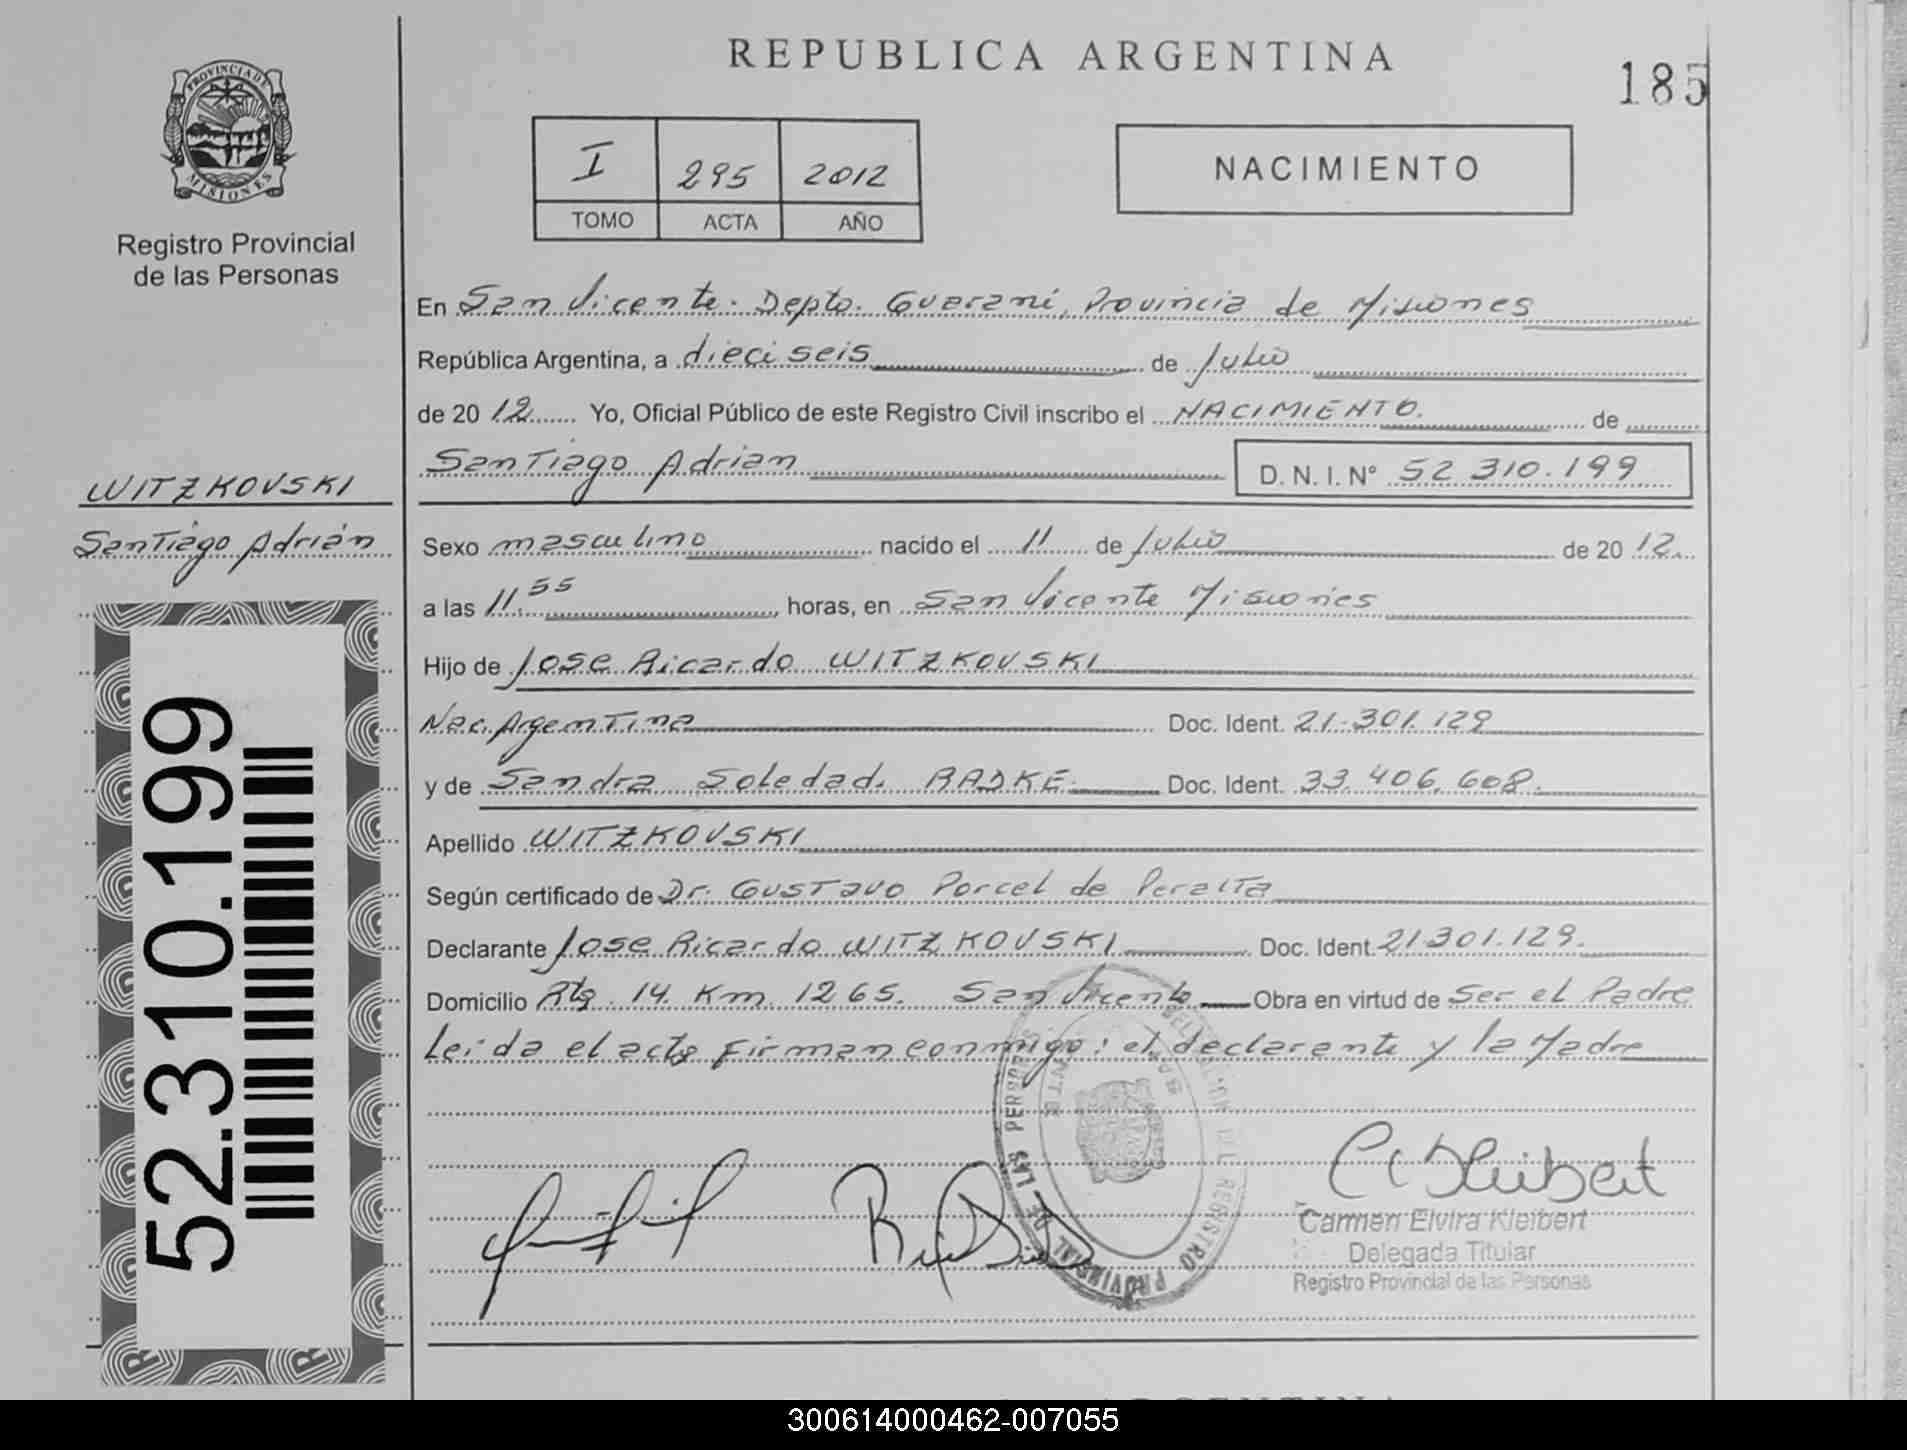 REPUBLICA ARGENTINA
185
PROVINCIA DE MISIONES
Registro Provincial
de las Personas
I 295 2012
TOMO ACTA AÑO
NACIMIENTO
En San Vicente. Depto. Guaraní, Provincia de Misiones
República Argentina, a dieciseis de Julio
de 20 12 Yo, Oficial Público de este Registro Civil inscribo el NACIMIENTO. de
Santiago Adrian D. N. I. N° 52 310.199
WITZKOVSKI
Santiago Adrián
Sexo masculino nacido el 11 de Julio de 20 12.
a las 11.55 horas, en San Vicente Misiones
Hijo de Jose Ricardo WITZKOVSKI
Nac. Argentina Doc. Ident. 21.301.129
y de Sandra Soledad RADKE Doc. Ident. 33.406.608.
Apellido WITZKOVSKI
Según certificado de Dr. Gustavo Porcel de Peralta
Declarante Jose Ricardo WITZKOVSKI Doc. Ident. 21301.129.
Domicilio Rta. 14 Km. 1265. San Vicente Obra en virtud de Ser el Padre
Leida el acta Firman conmigo: el declarante y la Madre
52.310.199
REGISTRO PROVINCIAL DE LAS PERSONAS
Carmen Elvira Kleibert
Delegada Titular
Registro Provincial de las Personas
300614000462-007055